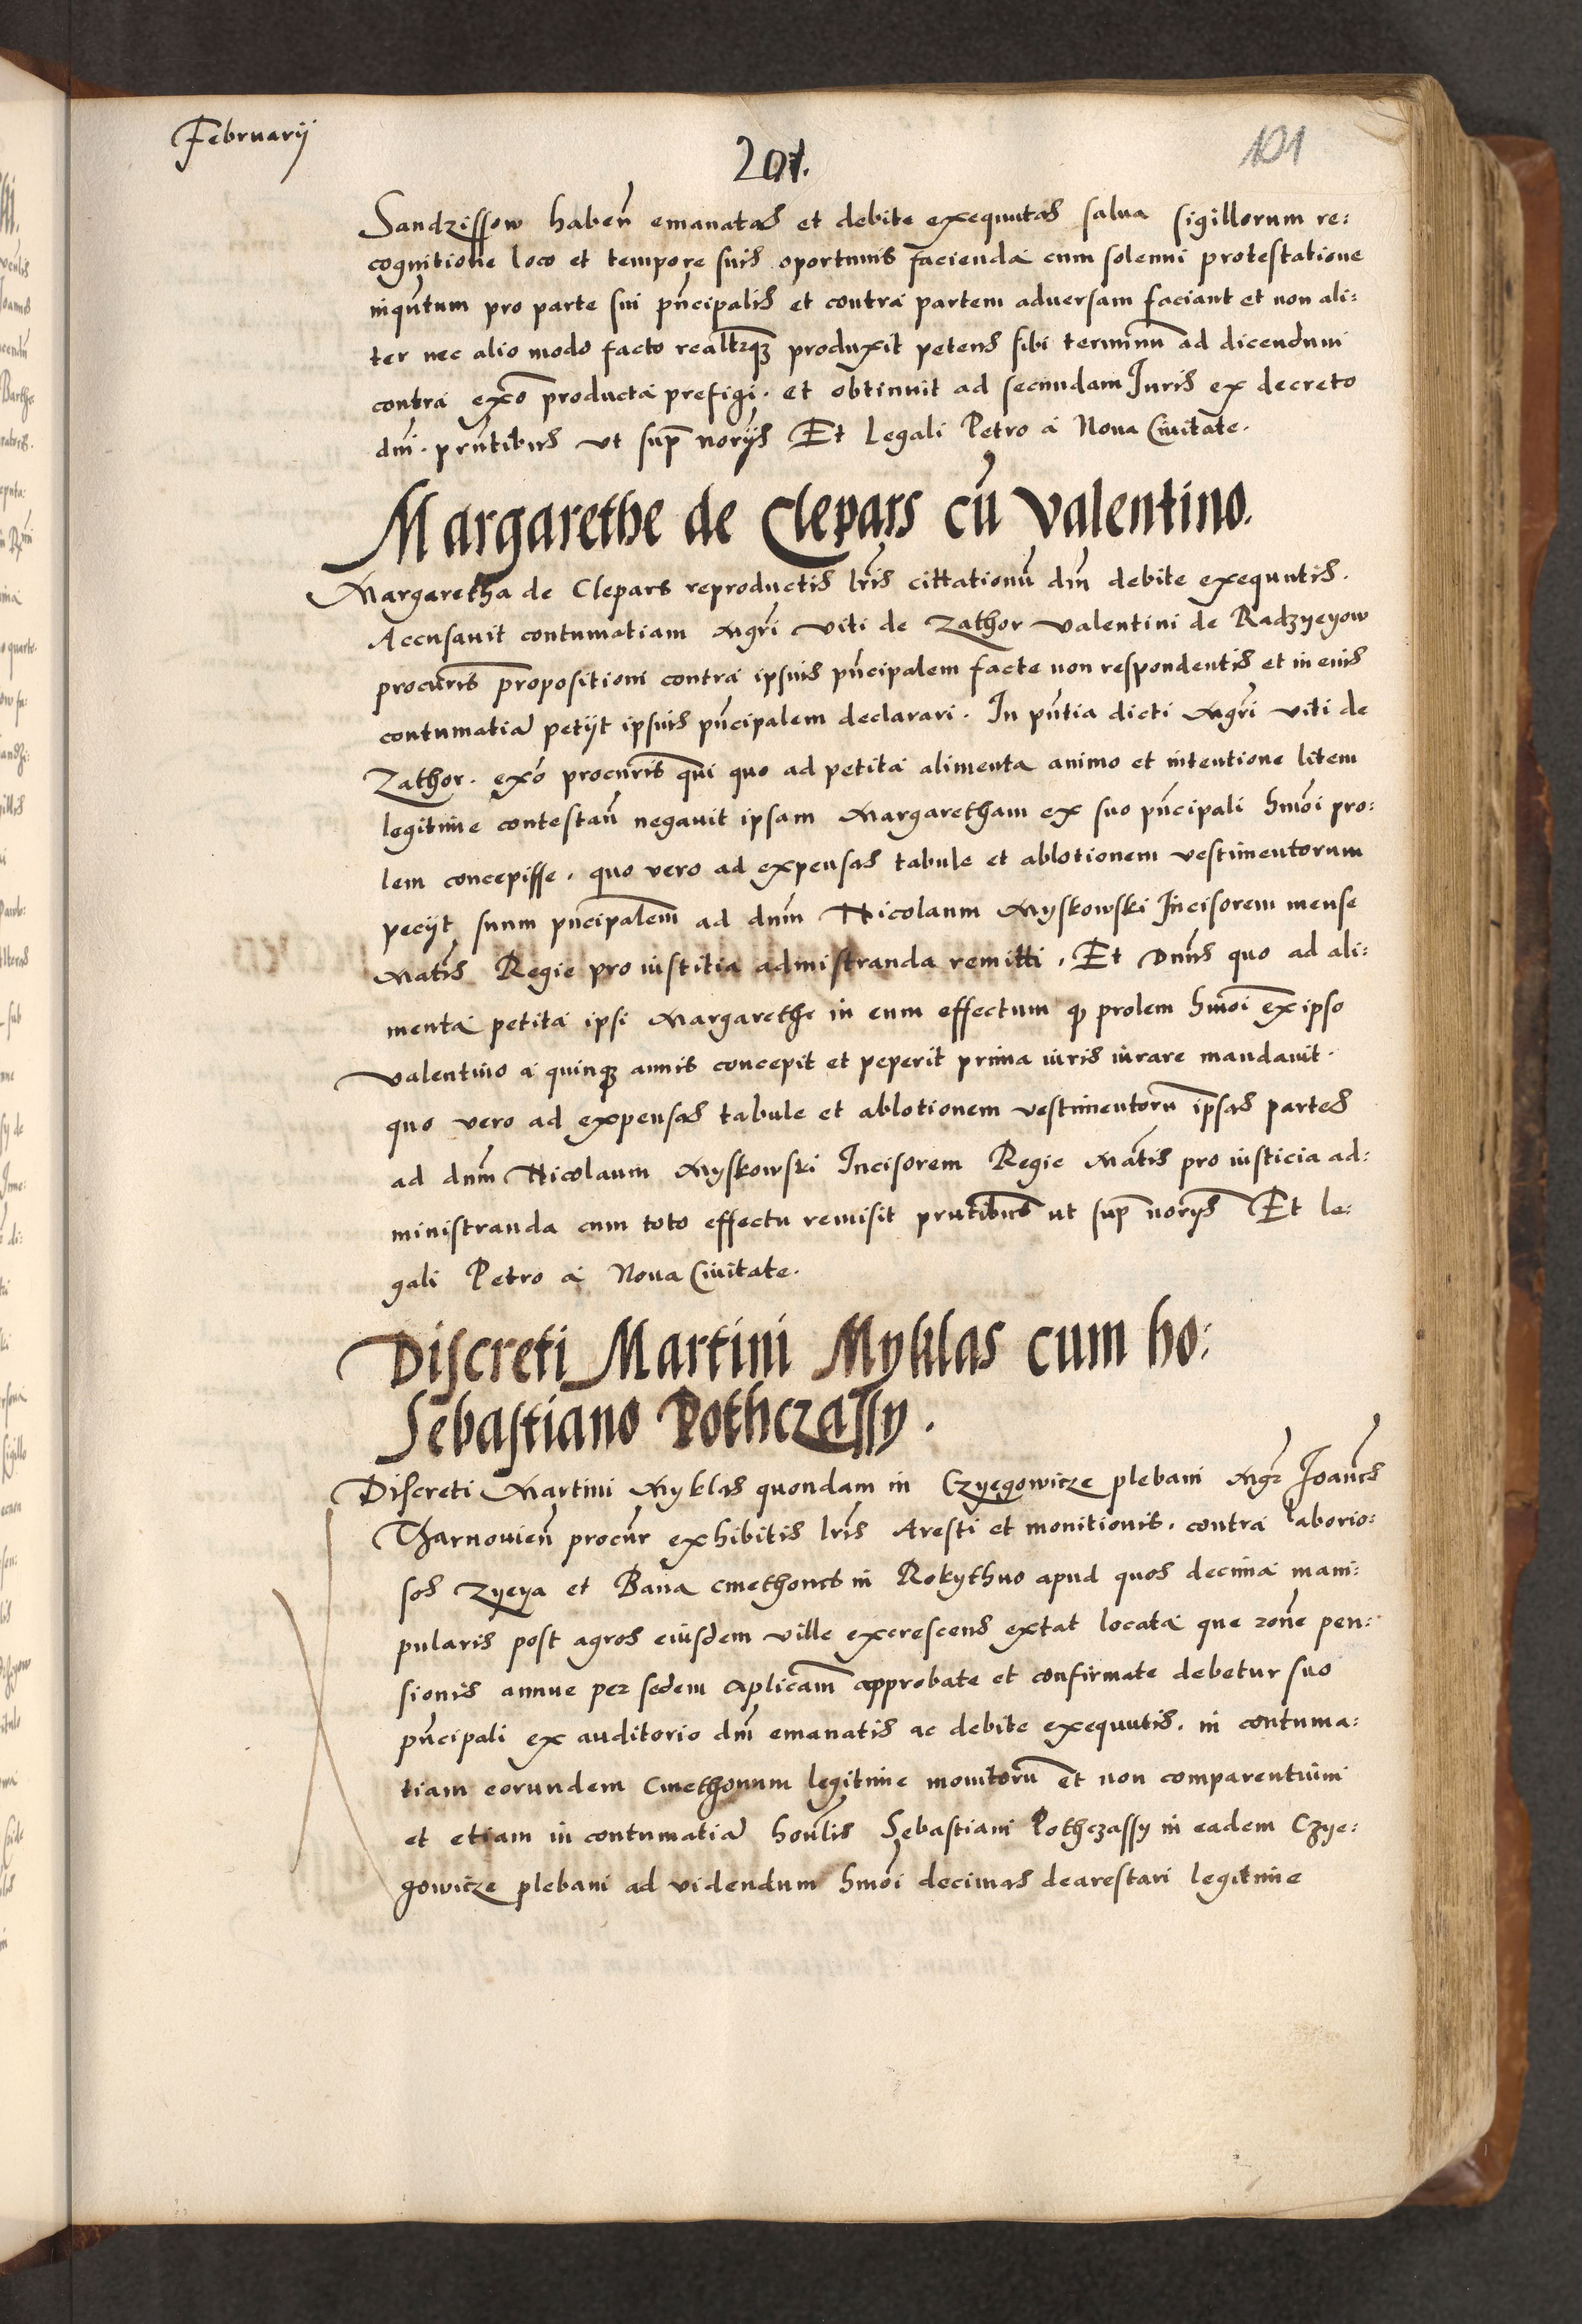 Februarij
201.
101
Sandzissow haben̄ emanatas et debite exequutas salua sigillorum re:
cognitione loco et tempore suis oportunis facienda cum solenni protestatione
inqn̄tum pro parte sui pn̄cipalis et contra partem aduersam faciant et non ali:
ter nec alio modo facto realr̄qȝ produxit petens sibi terminū ad dicendum
contra exō producta prefigi. et obtinuit ad secundam Juris ex decreto
dn̄i. pn̄tibus vt sup̄ norijs Et Legali Petro a Noua Ciuitate.
Margarethe de Clepars cū Valentino.
Margaretha de Clepars reproductis lr̄is cittationū dn̄i debite exequutis.
Accusauit contumatiam Mgr̄i Viti de Zathor Valentini de Radzyeyow
procūris propositioni contra ipsius pn̄cipalem facte non respondentis et in eius
contumatiā petijt ipsius pn̄cipalem declarari. In pn̄tia dicti Mgr̄i Viti de
Zathor. exō procūris qui quo ad petita alimenta animo et intentione litem
legitime contestan̄ negauit ipsam Margaretham ex suo pn̄cipali hmōi pro:
lem concepisse. quo vero ad expensas tabule et ablotionem vestimentorum
pecijt suum pn̄cipalem ad dn̄m Nicolaum Myskowski Incisorem mense
Matīs Regie pro iustitia admistranda remitti. Et Dn̄us quo ad ali:
menta petita ipsi Margarethe in eum effectum ꝙ prolem hmōi ex ipso
Valentino a quinqȝ annis concepit et peperit prima iuris iurare mandauit.
quo vero ad expensas tabule et ablotionem vestimentorū ipsas partes
ad dn̄m Nicolaum Myskowski Incisorem Regie Matīs pro iusticia ad:
ministranda cum toto effectu remisit pn̄tibus ut sup̄ norijs Et le:
gali Petro a Noua Ciuitate.
Discreti Martini Myklas cum ho:
Sebastiano Pothczassy.
Discreti Martini Myklas quondam in Czyegowicze plebani Mgr̄ Joan̄es
Tharnouien̄ procūr exhibitis lr̄is Aresti et monitionis. contra laborio:
sos Zyeya et Bana cmethones in Rokythno apud quos decima mani:
pularis post agros eiusdem ville excrescens extat locata que rōne pen:
sionis annue per sedem Aplicam̄ approbate et confirmate debetur suo
pn̄cipali ex auditorio dn̄i emanatis ac debite exequutis. in contuma:
tiam eorundem Cmethonum legitime monitorū et non comparentium
et etiam in contumatiā honl̄is Sebastiani Pothczassy in eadem Czye:
gowicze plebani ad videndum hmōi decimas dearestari legitime